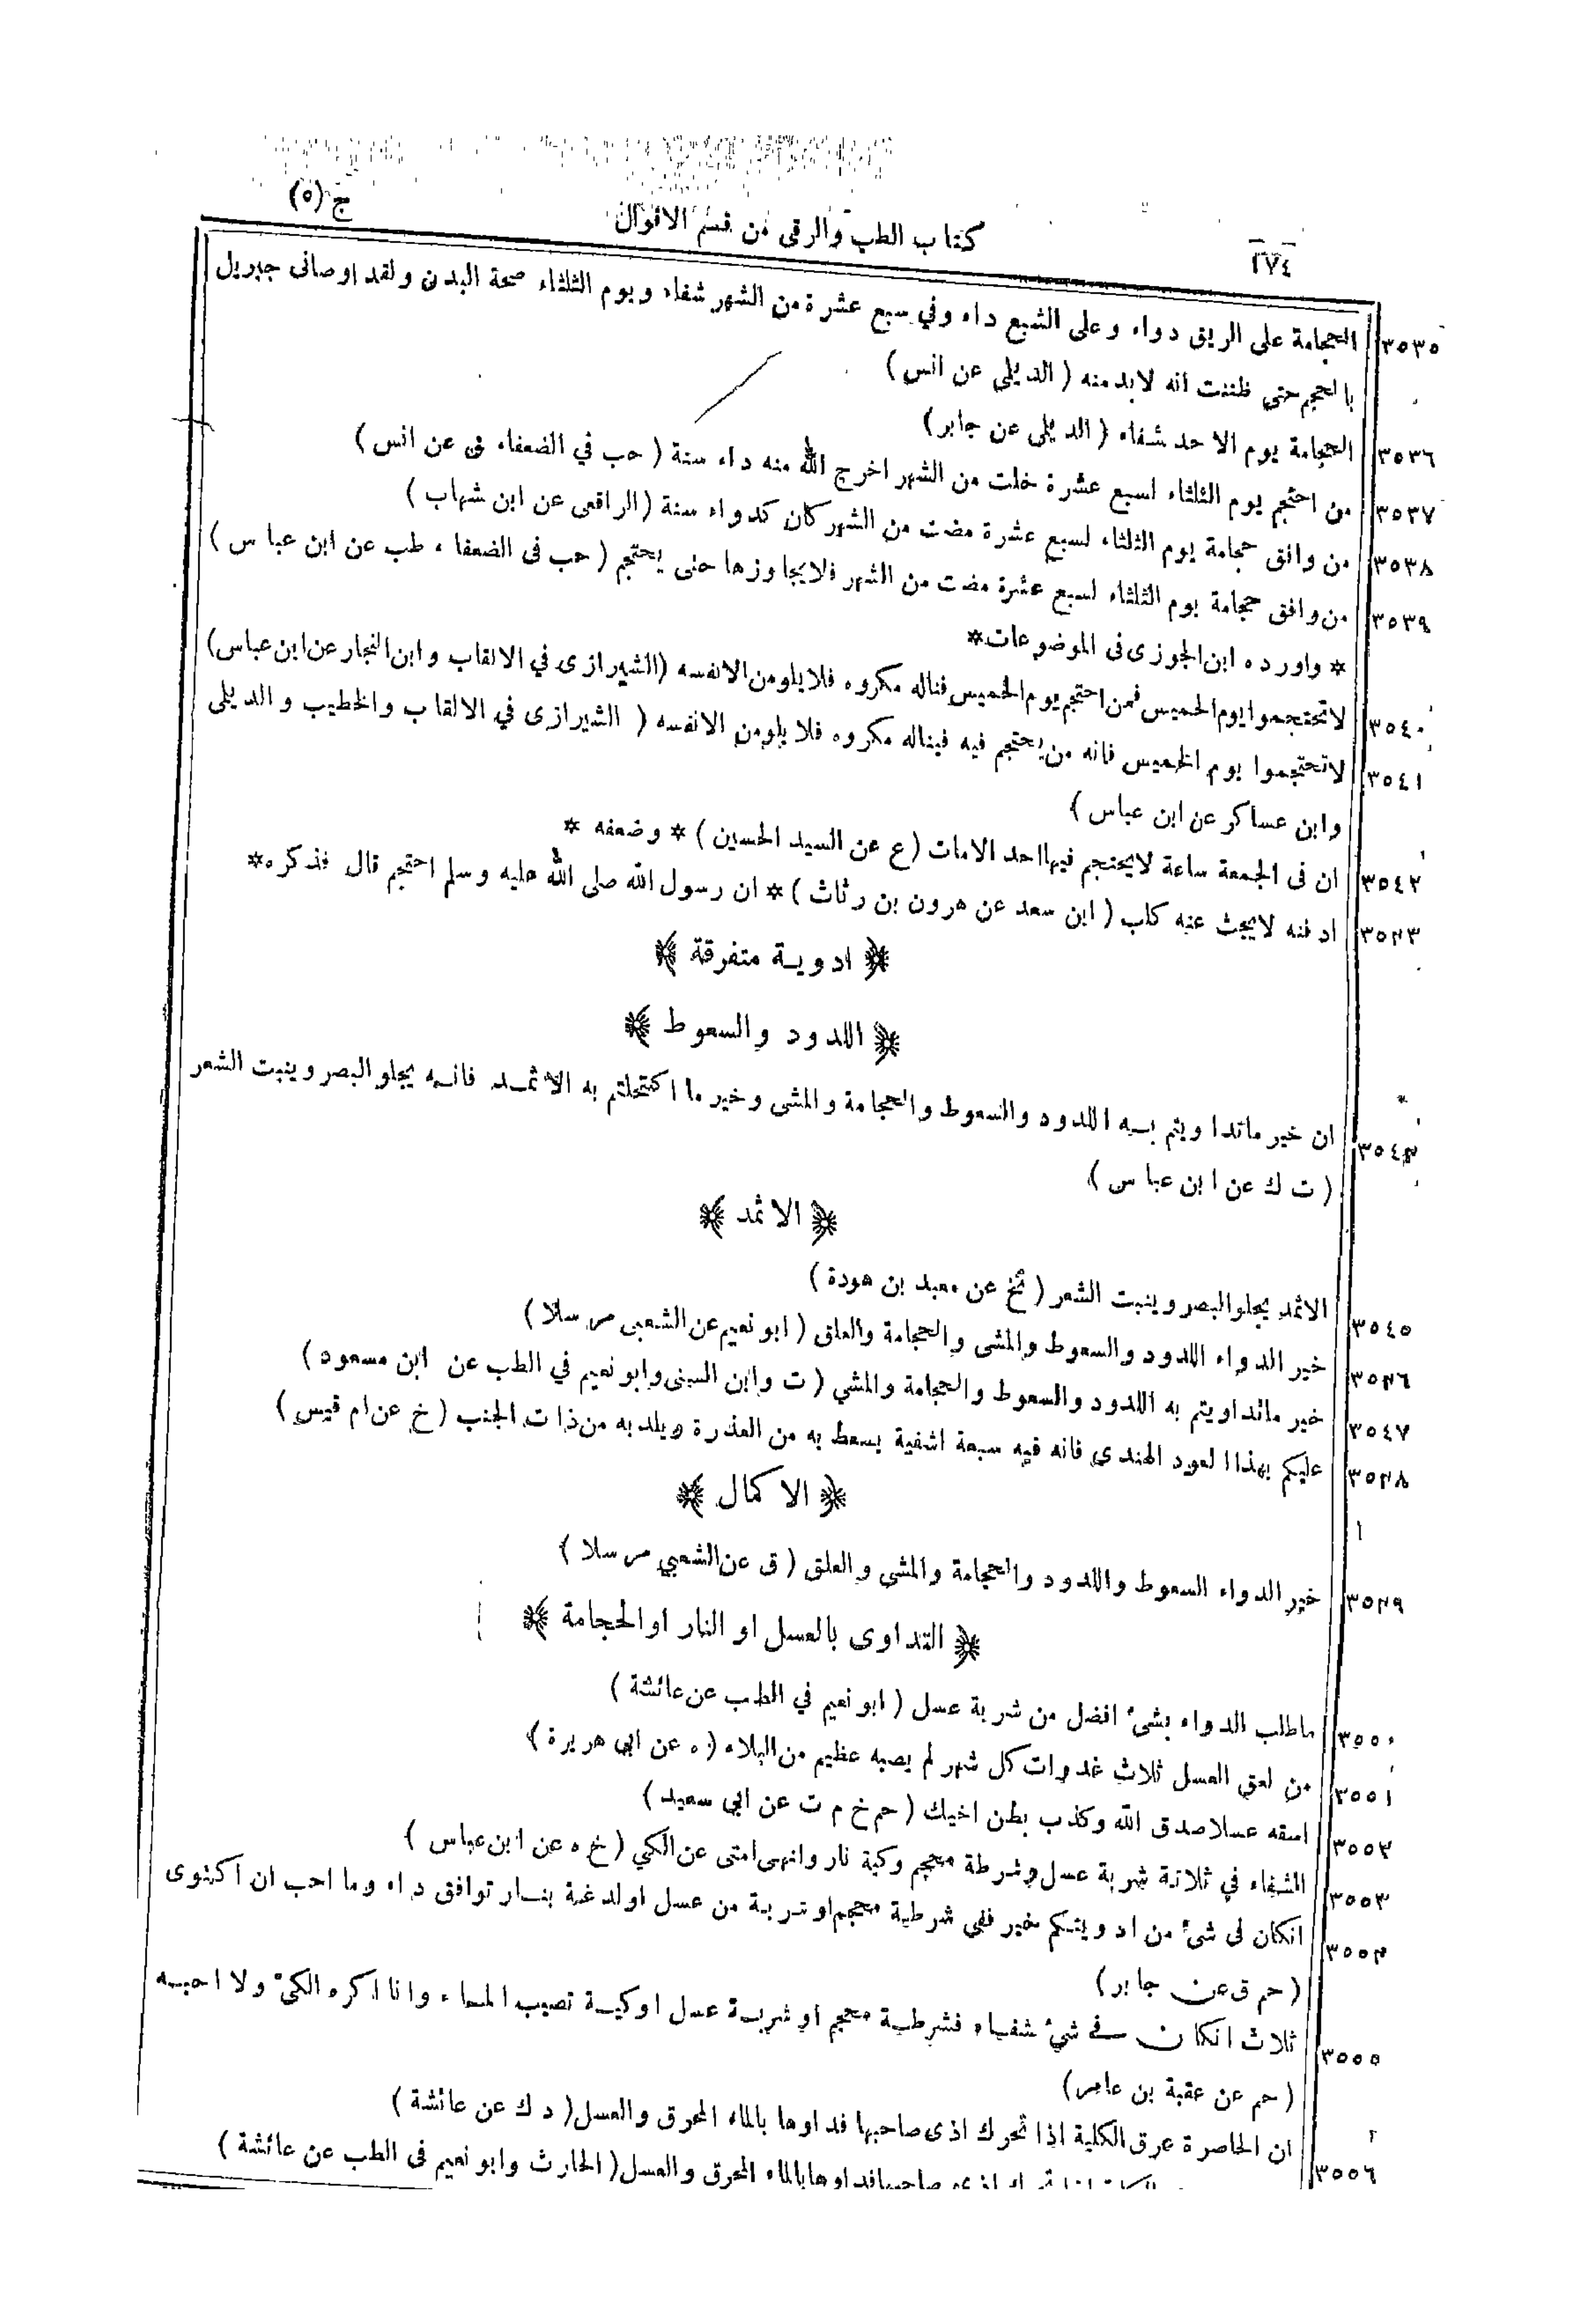 ١٧٤ كتاب الطب والرقى من قسم الاقوال ج (٥)
٣٥٣٥ الحجامة على الريق دواء وعلى الشبع داء وفي سبع عشرة من الشهر شفاء ويوم الثلثاء صحة البدن ولقد اوصانى جبريل
بالحجم حتى ظننت انه لابد منه (الديلى عن انس)
٣٥٣٦ الحجامة يوم الاحد شفاء (الديلى عن جابر)
٣٥٣٧ من احتجم يوم الثلثاء لسبع عشرة خلت من الشهر اخرج الله منه داء سنة (حب في الضعفاء ق عن انس)
٣٥٣٨ من وافق حجامة يوم الثلثاء لسبع عشرة مضت من الشهر كان كدواء سنة (الرافعى عن ابن شهاب)
٣٥٣٩ من وافق حجامة يوم الثلثاء لسبع عشرة مضت من الشهر فلا يجاوزها حتى يحتجم (حب فى الضعفاء طب عن ابن عباس)
* واورده ابن الجوزى فى الموضوعات *
٣٥٤٠ لا تحتجموا يوم الخميس فمن احتجم يوم الخميس فناله مكروه فلا يلومن الانفسه (الشيرازى في الالقاب وابن النجار عن ابن عباس)
٣٥٤١ لا تحتجموا يوم الخميس فانه من يحتجم فيه فيناله مكروه فلا يلومن الانفسه (الشيرازى في الالقاب والخطيب والديلى
وابن عساكر عن ابن عباس)
٣٥٤٢ ان فى الجمعة ساعة لا يحتجم فيها احد الامات (ع عن السيد الحسين) * وضعفه *
٣٥٤٣ ادفنه لا يبحث عنه كلب (ابن سعد عن هرون بن رئاث) * ان رسول الله صلى الله عليه وسلم احتجم قال فذكره *
﴿ ادوية متفرقة ﴾
﴿ اللدود والسعوط ﴾
٣٥٤٤ ان خير ماتداويتم به اللدود والسعوط والحجامة والمشى وخير ما اكتحلتم به الاثمد فانه يجلو البصر وينبت الشعر
(ت ك عن ابن عباس)
﴿ الاثمد ﴾
٣٥٤٥ الاثمد يجلو البصر وينبت الشعر (تخ عن معبد بن هودة)
٣٥٤٦ خير الدواء اللدود والسعوط والمشى والحجامة والعلق (ابو نعيم عن الشعبى مرسلا)
٣٥٤٧ خير ماتداويتم به اللدود والسعوط والحجامة والمشي (ت وابن السنى وابو نعيم في الطب عن ابن مسعود)
٣٥٤٨ عليكم بهذا العود الهندى فانه فيه سبعة اشفية يسعط به من العذرة ويلد به من ذات الجنب (خ عن ام قيس)
﴿ الاكمال ﴾
٣٥٤٩ خير الدواء السعوط واللدود والحجامة والمشى والعلق (ق عن الشعبي مرسلا)
﴿ التداوى بالعسل او النار او الحجامة ﴾
٣٥٥٠ ماطلب الدواء بشىء افضل من شربة عسل (ابو نعيم في الطب عن عائشة)
٣٥٥١ من لعق العسل ثلاث غدوات كل شهر لم يصبه عظيم من البلاء (ه عن ابى هريرة)
٣٥٥٢ اسقه عسلا صدق الله وكذب بطن اخيك (حم خ م ت عن ابى سعيد)
٣٥٥٣ الشفاء في ثلاثة شربة عسل وشرطة محجم وكية نار وانهى امتى عن الكي (خ ه عن ابن عباس)
٣٥٥٤ انكان فى شىء من ادويتكم خير ففى شرطة محجم او شربة من عسل او لدغة بنار توافق داء وما احب ان اكتوى
(حم ق عن جابر)
٣٥٥٥ ثلاث انكان في شىء شفاء فشرطة محجم او شربة عسل او كية تصيب الماء وانا اكره الكى ولا احبه
(حم عن عقبة بن عامر)
٣٥٥٦ ان الخاصرة عرق الكلية اذا تحرك اذى صاحبها فداوها بالماء المحرق والعسل (د ك عن عائشة)
اذى صاحبها فداوها بالماء المحرق والعسل (الحارث وابو نعيم فى الطب عن عائشة)